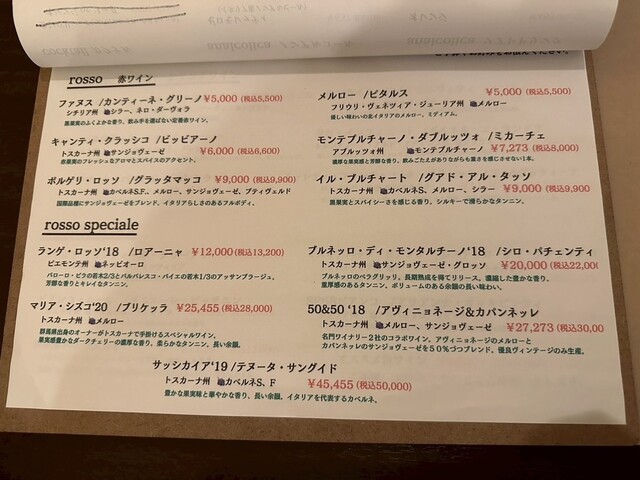 rosso 赤ワイン
ファヌス /カンティーネ・グリーノ ¥5,000 (税込5,500)
シチリア州 シラー、ネロ・ダーヴォラ
黒果実のふくよかな香り。飲み手を選ばない定番赤ワイン。
メルロー /ピタルス ¥5,000 (税込5,500)
フリウリ・ヴェネツィア・ジューリア州 メルロー
優しい味わいの北イタリアのメルロー、ミディアム。
キャンティ・クラッシコ /ビッビアーノ
トスカーナ州 サンジョヴェーゼ ¥6,000 (税込6,600)
赤果実のフレッシュなアロマとスパイスのアクセント。
モンテプルチャーノ・ダブルッツォ /ミカーチェ
アブルッツォ州 モンテプルチャーノ ¥7,273 (税込8,000)
濃厚な果実感と芳醇な香り。飲みごたえがありながらも重さを感じさせない1本。
ボルゲリ・ロッソ /グラッタマッコ ¥9,000 (税込9,900)
トスカーナ州 カベルネS.F.、メルロー、サンジョヴェーゼ、プティヴェルド
国際品種にサンジョヴェーゼをブレンド。イタリアらしさのあるフルボディ。
イル・ブルチャート /グアド・アル・タッソ
トスカーナ州 カベルネS、メルロー、シラー ¥9,000 (税込9,900
黒果実とスパイシーさを感じる香り。シルキーで滑らかなタンニン。
rosso speciale
ランゲ・ロッソ'18 /ロアーニャ ¥12,000 (税込13,200)
ピエモンテ州 ネッビオーロ
バローロ・ピラの若木2/3とバルバレスコ・パイエの若木1/3のアッサンブラージュ。
芳醇な香りとキレイなタンニン。
ブルネッロ・ディ・モンタルチーノ'18 /シロ・パチェンティ
トスカーナ州 サンジョヴェーゼ・グロッソ ¥20,000 (税込22,00
ブルネッロのベラグリッフ。長期熟成を得てリリース。濃縮した豊かな香り。
重厚感のあるタンニン。ボリュームのある余韻の長い味わい。
マリア・シズコ'20 /ブリケッラ ¥25,455 (税込28,000)
トスカーナ州 メルロー
群馬県出身のオーナーがトスカーナで手掛けるスペシャルワイン。
果実感豊かなダークチェリーの濃厚な香り、柔らかなタンニン、長い余韻。
50&50 '18 /アヴィニョネージ&カパンネッレ
トスカーナ州 メルロー、サンジョヴェーゼ ¥27,273 (税込30,00
名門ワイナリー2社のコラボワイン。アヴィニョネージのメルローと
カパンネッレのサンジョヴェーゼを50%づつブレンド。優良ヴィンテージのみ生産。
サッシカイア'19 /テヌータ・サングイド
トスカーナ州 カベルネS、F ¥45,455 (税込50,000)
豊かな果実味と華やかな香り、長い余韻。イタリアを代表するカベルネ。